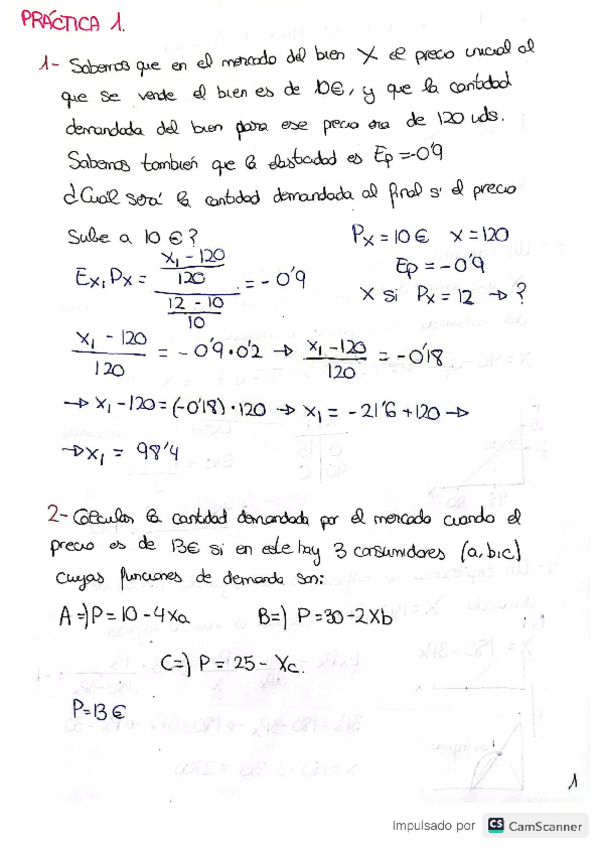 PRÁCTICA 1.
1- Sabemos que en el mercado del bien X el precio inicial al
que se vende el bien es de 10€, y que la cantidad
demandada del bien para ese precio era de 120 uds.
Sabemos también que la elasticidad es Ep = -0'9
¿Cuál será la cantidad demandada al final si el precio
sube a 10 €?
Px = 10 € x = 120
Ep = -0'9
X si Px = 12 → ?
Ex,Px = ((x₁ - 120)/120)/((12 - 10)/10) = -0'9
(x₁ - 120)/120 = -0'9·0'2 → (x₁ - 120)/120 = -0'18
→ x₁ - 120 = (-0'18)·120 → x₁ = -21'6 + 120 →
→ x₁ = 98'4
2- Calcular la cantidad demandada por el mercado cuando el
precio es de 13€ si en este hay 3 consumidores (a,b,c)
cuyas funciones de demanda son:
A ⇒) P = 10 - 4Xa B ⇒) P = 30 - 2Xb
C ⇒) P = 25 - Xc.
P = 13 €
1
Impulsado por CS CamScanner